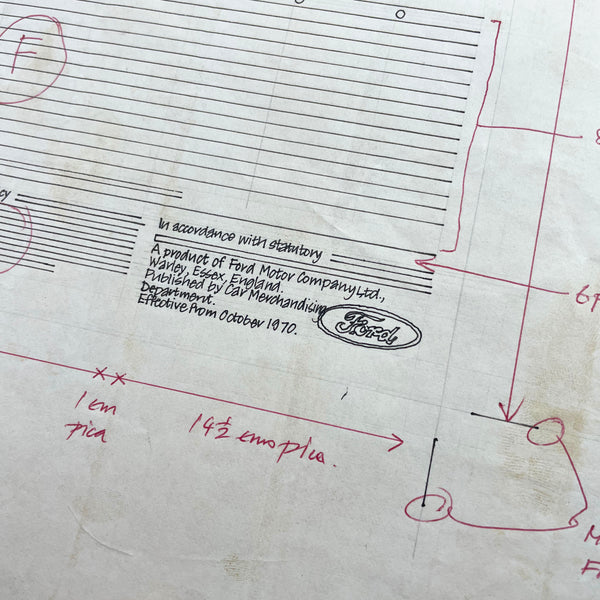 F
8
cy
In accordance with statutory
A product of Ford Motor Company Ltd.,
Warley, Essex, England.
Published by Car Merchandising
Department.
Effective from October 1970.
Ford
6P
1 em
pica
14½ ems pica.
M
F